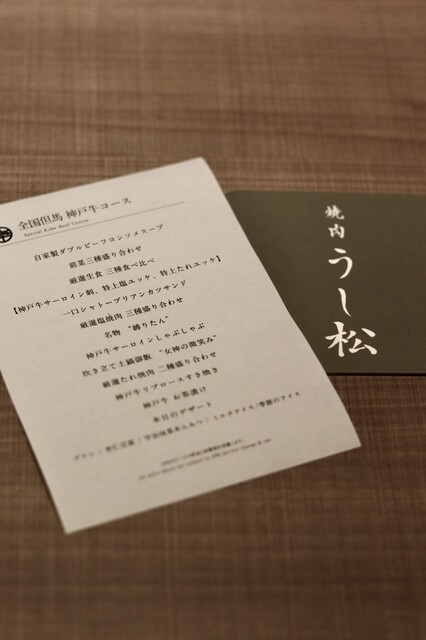 全国但馬 神戸牛コース
Special Kobe Beef Course
自家製ダブルビーフコンソメスープ
前菜三種盛り合わせ
厳選生食 三種食べ比べ
【神戸牛サーロイン刺、特上塩ユッケ、特上たれユッケ】
一口シャトーブリアンカツサンド
厳選塩焼肉 三種盛り合わせ
名物 “縛りたん”
神戸牛サーロインしゃぶしゃぶ
炊き立て土鍋御飯 “女神の微笑み”
厳選たれ焼肉 二種盛り合わせ
神戸牛リブロースすき焼き
神戸牛 お茶漬け
本日のデザート
プリン / 杏仁豆腐 / 宇治抹茶あんみつ / ミルクアイス/季節のアイス
焼肉
うし松